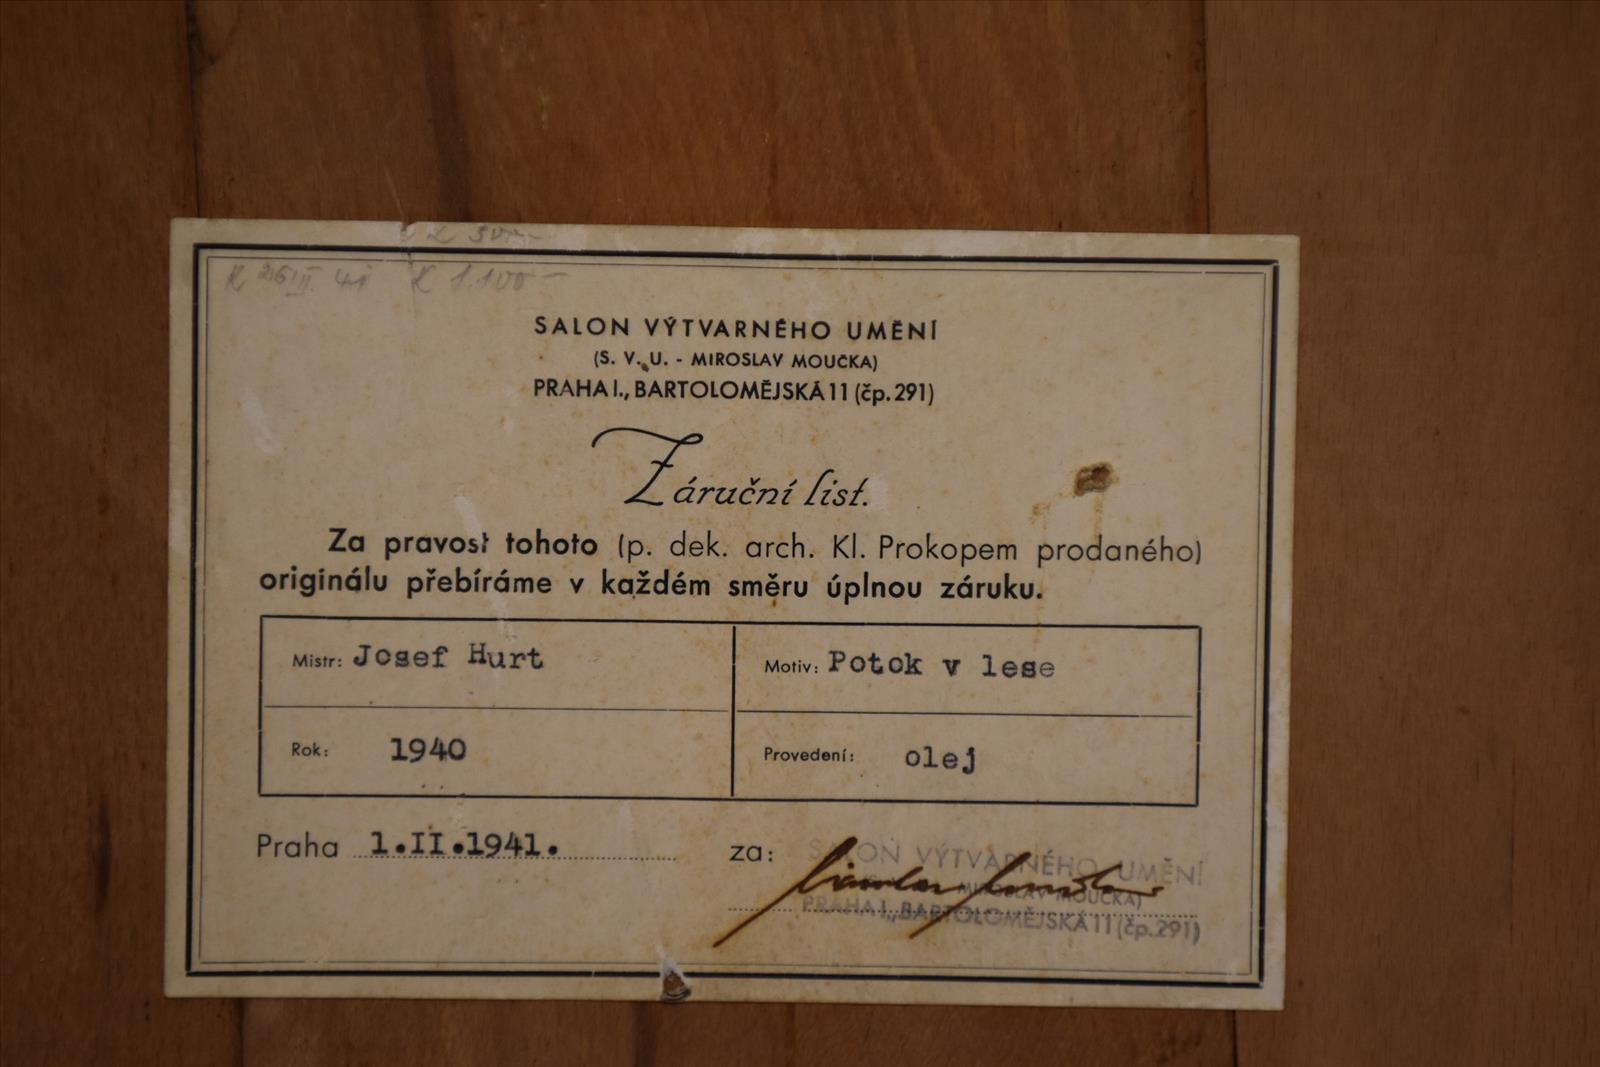 K 1.100 —
SALON VÝTVARNÉHO UMĚNÍ
(S. V. U. - MIROSLAV MOUČKA)
PRAHA I., BARTOLOMĚJSKÁ 11 (čp. 291)
Záruční list.
Za pravost tohoto (p. dek. arch. Kl. Prokopem prodaného)
originálu přebíráme v každém směru úplnou záruku.
Mistr: Josef Hurt
Motiv: Potok v lese
Rok: 1940
Provedení: olej
Praha 1.II.1941.
za:
SALON VÝTVARNÉHO UMĚNÍ
MIROSLAV MOUČKA)
PRAHA I., BARTOLOMĚJSKÁ 11 (čp. 291)